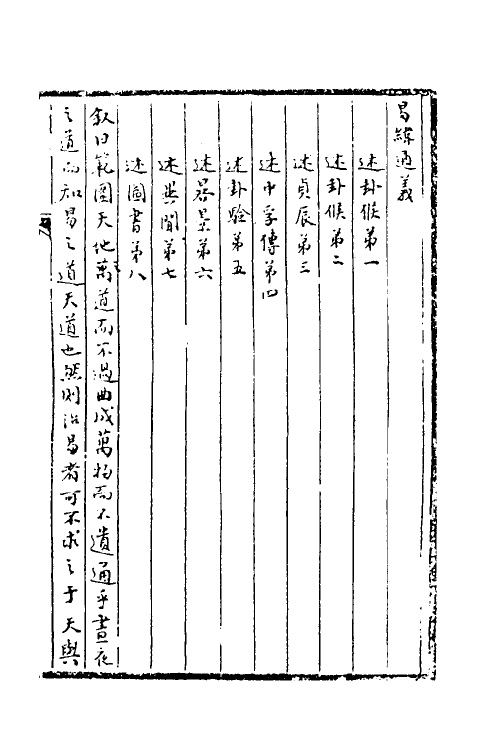 易緯通義
述卦候第一
述卦候第二
述貞辰第三
述中孚傳第四
述卦驗第五
述晷景第六
述異聞第七
述圖書第八
叙曰範圍天地萬道而不過曲成萬物而不遺通乎晝夜
之道而知易之道天道也然則治易者可不求之于天與